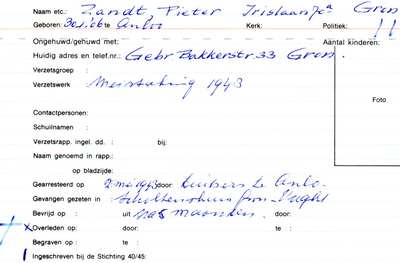 Naam etc.: Zandt Pieter Irislaan 7a Gron
Geboren: 30-1-'06 te Anloo Kerk: Politiek:
Ongehuwd/gehuwd met: Aantal kinderen:
Huidig adres en telef.nr.: Gebr Bakkerstr. 33 Gron.
Verzetsgroep :
Verzetswerk : Meistaking 1943
Foto
Contactpersonen:
Schuilnamen :
Verzetsrapp. ingel. dd. : bij:
Naam genoemd in rapp.:
op bladzijde:
Gearresteerd op : 2 mei 1943 door: te Anlo.
Gevangen gezeten in : Scholtenshuis Gron. Vught
Bevrijd op : uit na 5 maanden door:
x Overleden op: door: te :
Begraven op : te :
Ingeschreven bij de Stichting 40/45: